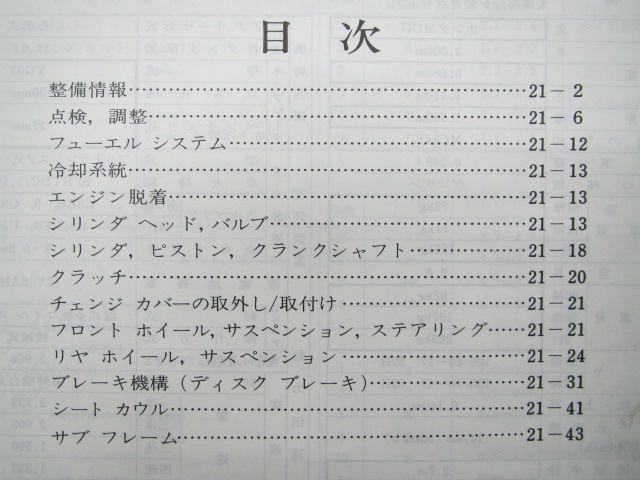 目次
整備情報……21－2
点検, 調整……21－6
フューエル システム……21－12
冷却系統……21－13
エンジン脱着……21－13
シリンダ ヘッド, バルブ……21－13
シリンダ, ピストン, クランクシャフト……21－18
クラッチ……21－20
チェンジ カバーの取外し/取付け……21－21
フロント ホイール, サスペンション, ステアリング……21－21
リヤ ホイール, サスペンション……21－24
ブレーキ機構 (ディスク ブレーキ)……21－31
シート カウル……21－41
サブ フレーム……21－43